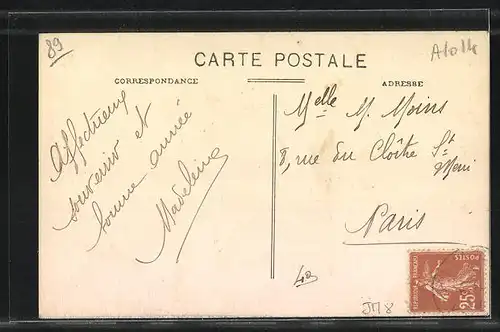 89
A1014
CARTE POSTALE
CORRESPONDANCE
ADRESSE
Affectueux
souvenir et
bonne année
Madeleine
Melle M. Moins
8, rue du Cloître St
Merri
Paris
JM8
POSTES
REPUBLIQUE FRANÇAISE
25c